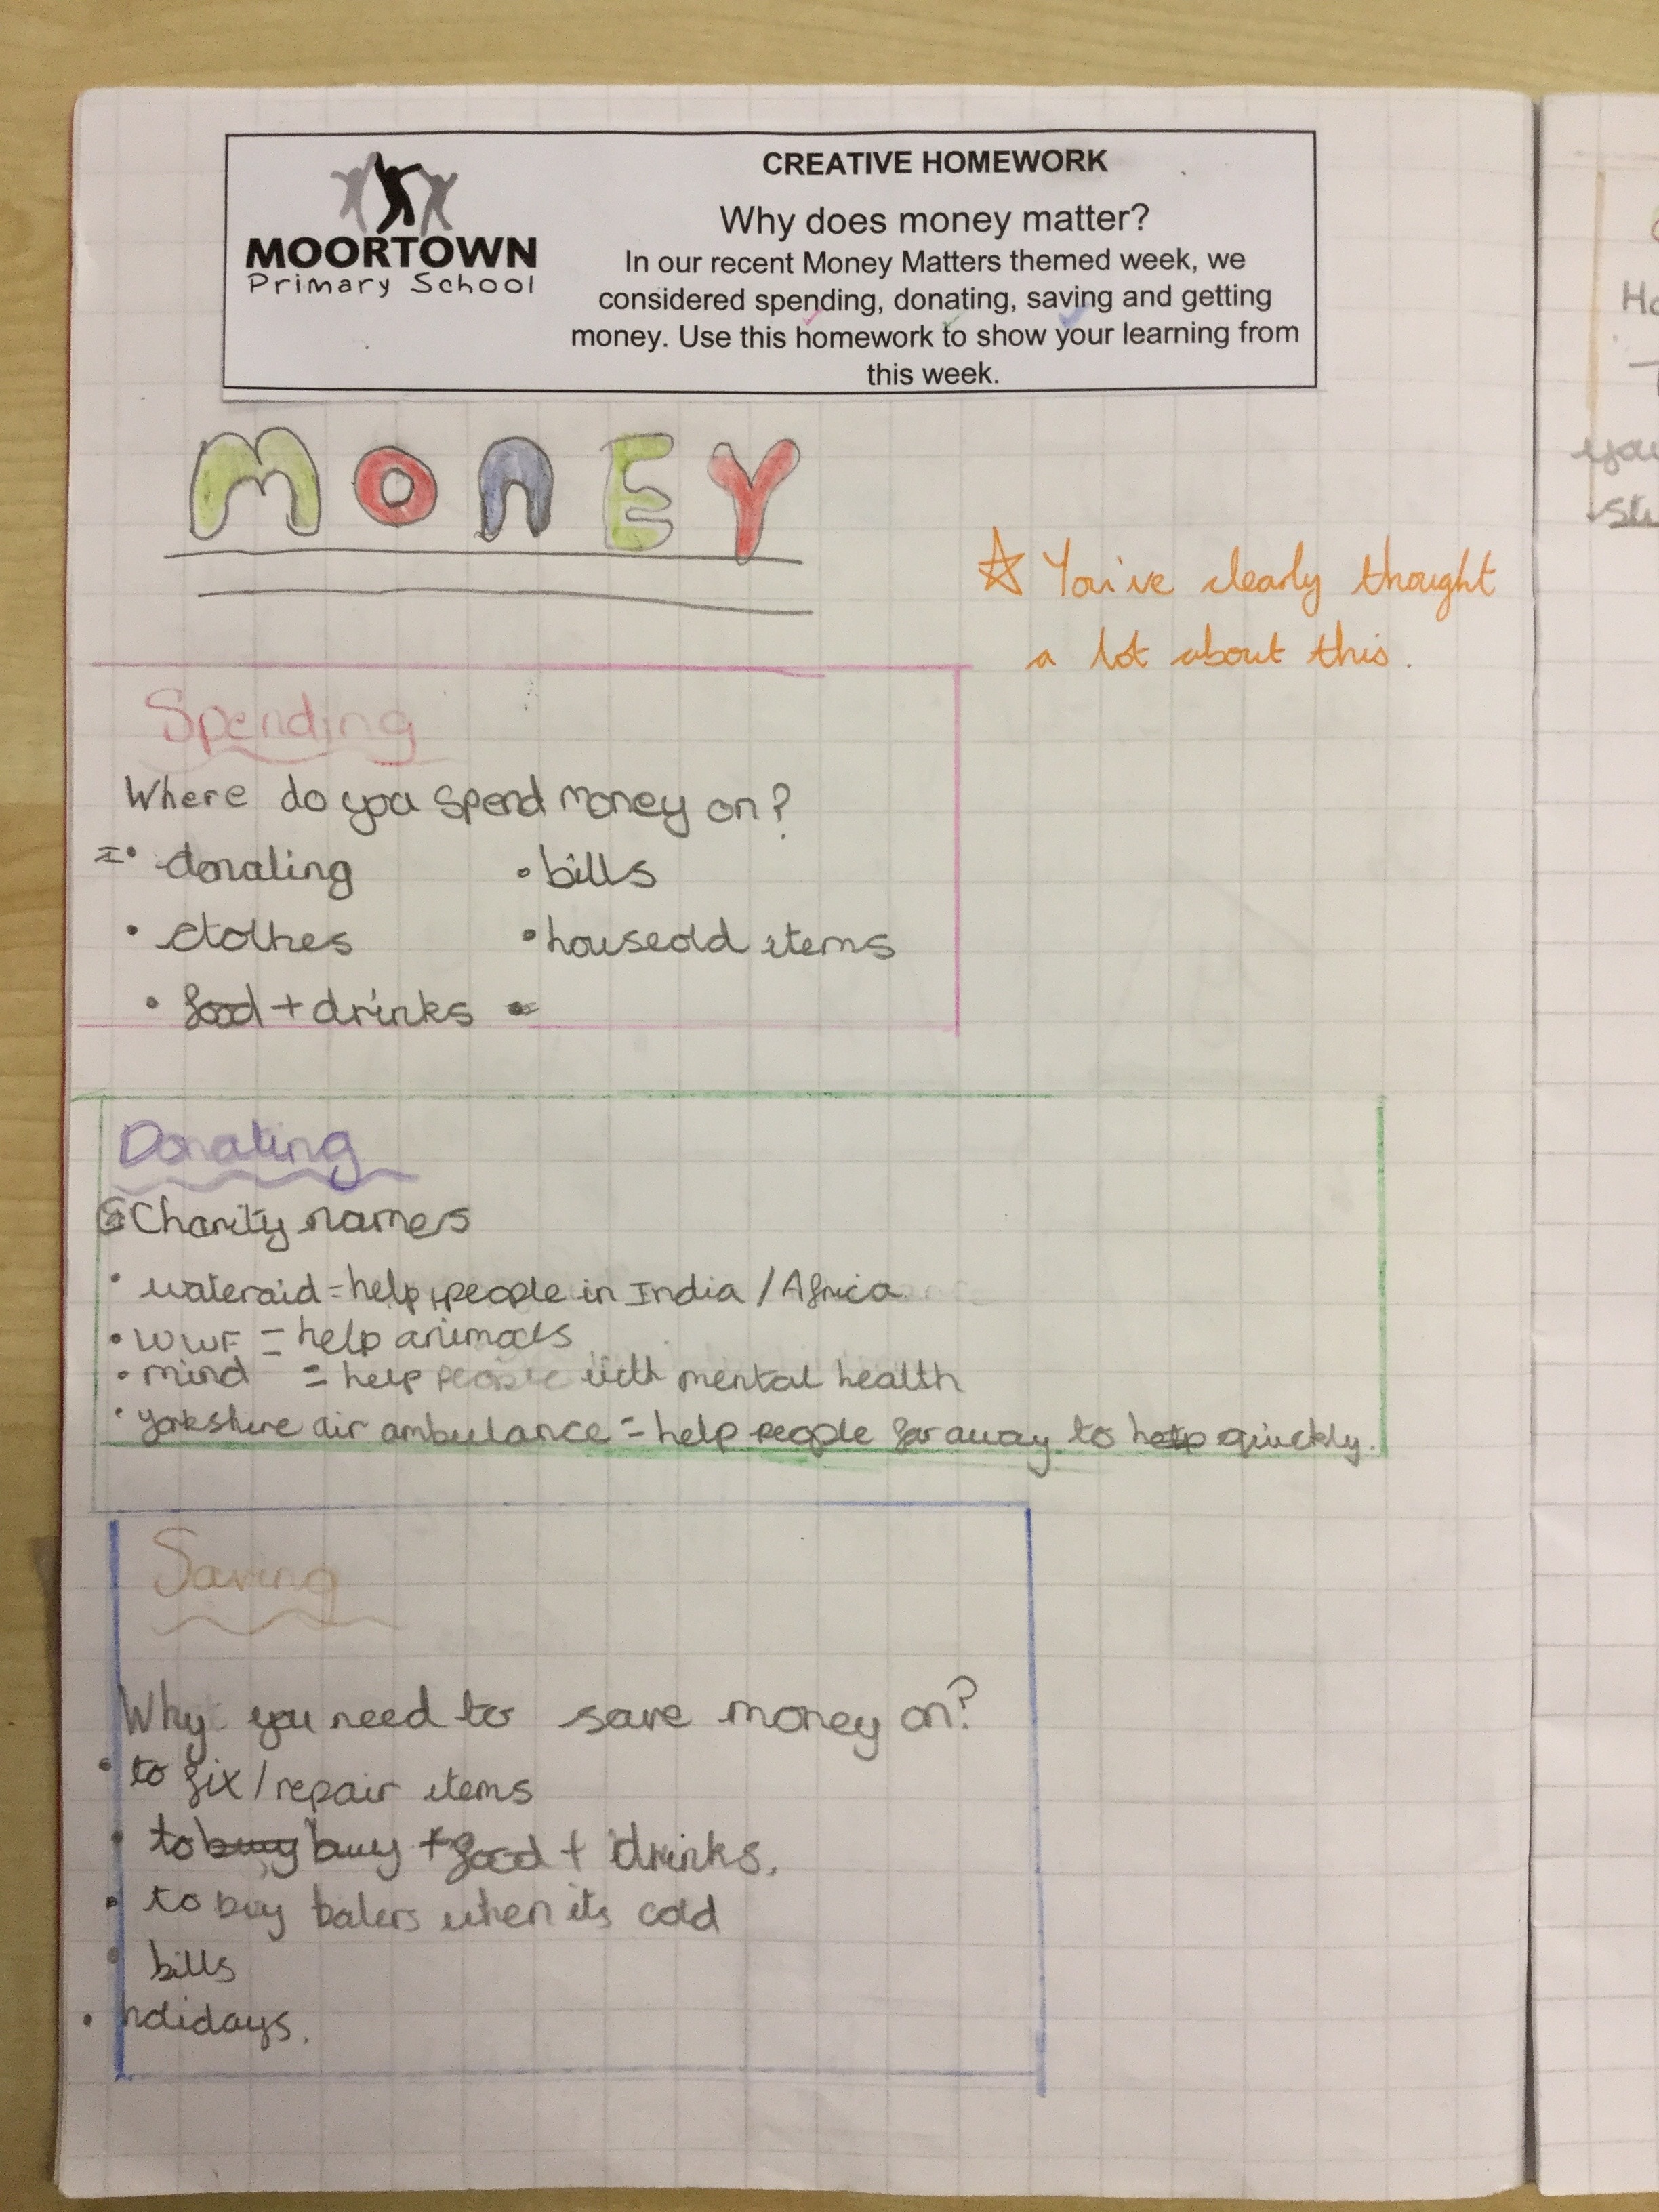 MOORTOWN
Primary School
CREATIVE HOMEWORK
Why does money matter?
In our recent Money Matters themed week, we
considered spending, donating, saving and getting
money. Use this homework to show your learning from
this week.
MOnEY
☆ You've clearly thought
a lot about this.
Spending
Where do you spend money on?
• donating • bills
• clothes • houseold items
• food + drinks
Donating
Charity names
• wateraid = help people in India / Africa
• WWF = help animals
• mind = help people with mental health
• yorkshire air ambulance = help people far away to help quickly.
Saving
Why you need to save money on?
• to fix / repair items
• to buy buy + food + drinks.
• to buy when its cold
• bills
• holidays.
Ho
you